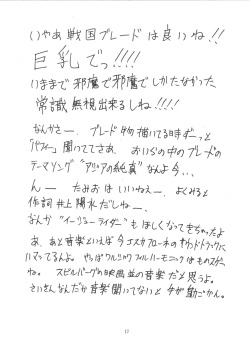 いやあ戦国ブレードは良いね!!
巨乳でっ!!!!
いままで邪魔で邪魔でしかたなかった
常識無視出来るしね!!!
なんかさー、ブレード物描いてる時ずーっと
「パフィー」聞いててさあ、おいらの中のブレードの
テーマソング"アジアの純真"なんよ今、、、
んー たみおはいいねえー、よくみると
作詞井上陽水だしねー、
なんか"イージューライダー"もほしくなってきちゃったよ
あ、あと音楽といえば今エスカフローネのサウンドトラックに
ハマってるんよ。やっぱワルシャワフィルハーモニックはものスゴイ
ね。スピルバーグの映画並の音楽だと思うよ。
さいきんなんだか音楽聞いてないと手が動かん。
17